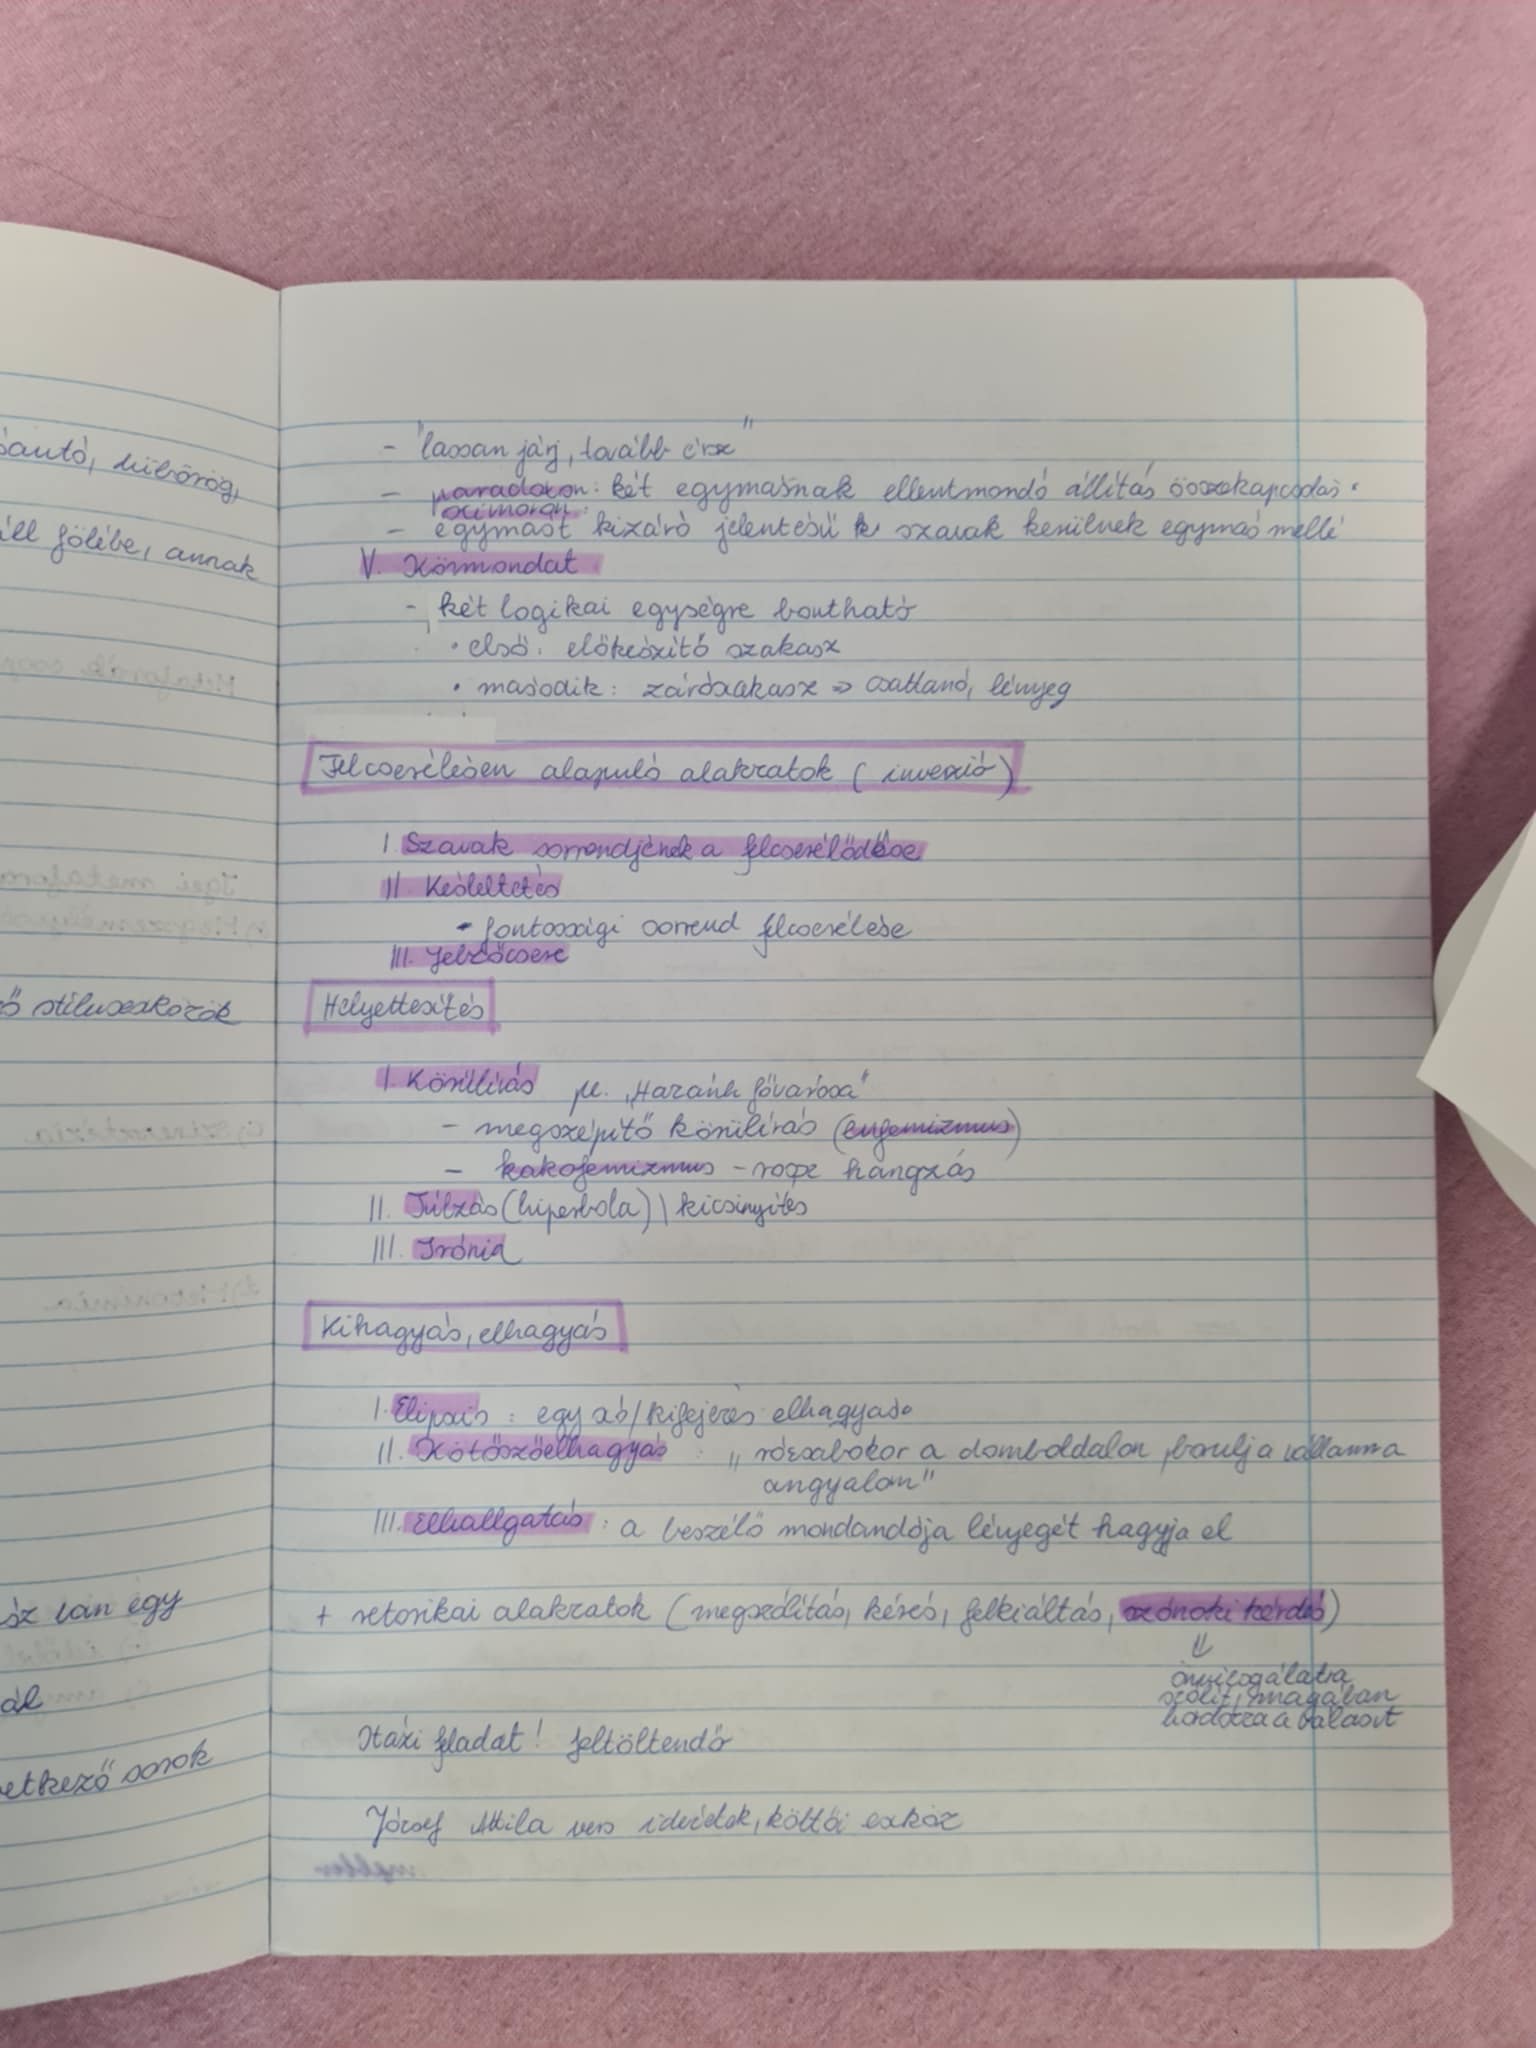 sautó, tülkörög,
áll fölébe, annak
ő stíluseszközök
ász ván egy
ál
etkező sorok
- "lassan járj, tovább érsz"
- paradoxon: két egymásnak ellentmondó állítás összekapcsolás.
oximoron:
- egymást kizáró jelentésű szavak kerülnek egymás mellé
V. Körmondat
- két logikai egységre bontható
• első: előkészítő szakasz
• második: zárószakasz => csattanó, lényeg
Felcserélésen alapuló alakzatok (inverzió)
I. Szavak sorrendjének a felcserélődése
II. Késleltetés
- fontossági sorrend felcserélése
III. Jelzőcsere
Helyettesítés
I. Körülírás pl. "Hazánk fővárosa"
- megszépítő körülírás (eufemizmus)
- kakofemizmus - rossz hangzás
II. Túlzás (hiperbola) \ kicsinyítés
III. Irónia
Kihagyás, elhagyás
I. Elipszis: egy szó/kifejezés elhagyása
II. Kötőszóelhagyás "rózsabokor a domboldalon borulj a vállamra
angyalom"
III. Elhallgatás: a beszélő mondandója lényegét hagyja el
+ retorikai alakzatok (megszólítás, kérés, felkiáltás, szónoki kérdés)
önvizsgálatra
szólít, magában
hordozza a választ
Házi fladat! feltöltendő
József Attila vers idézetek, költői eszköz